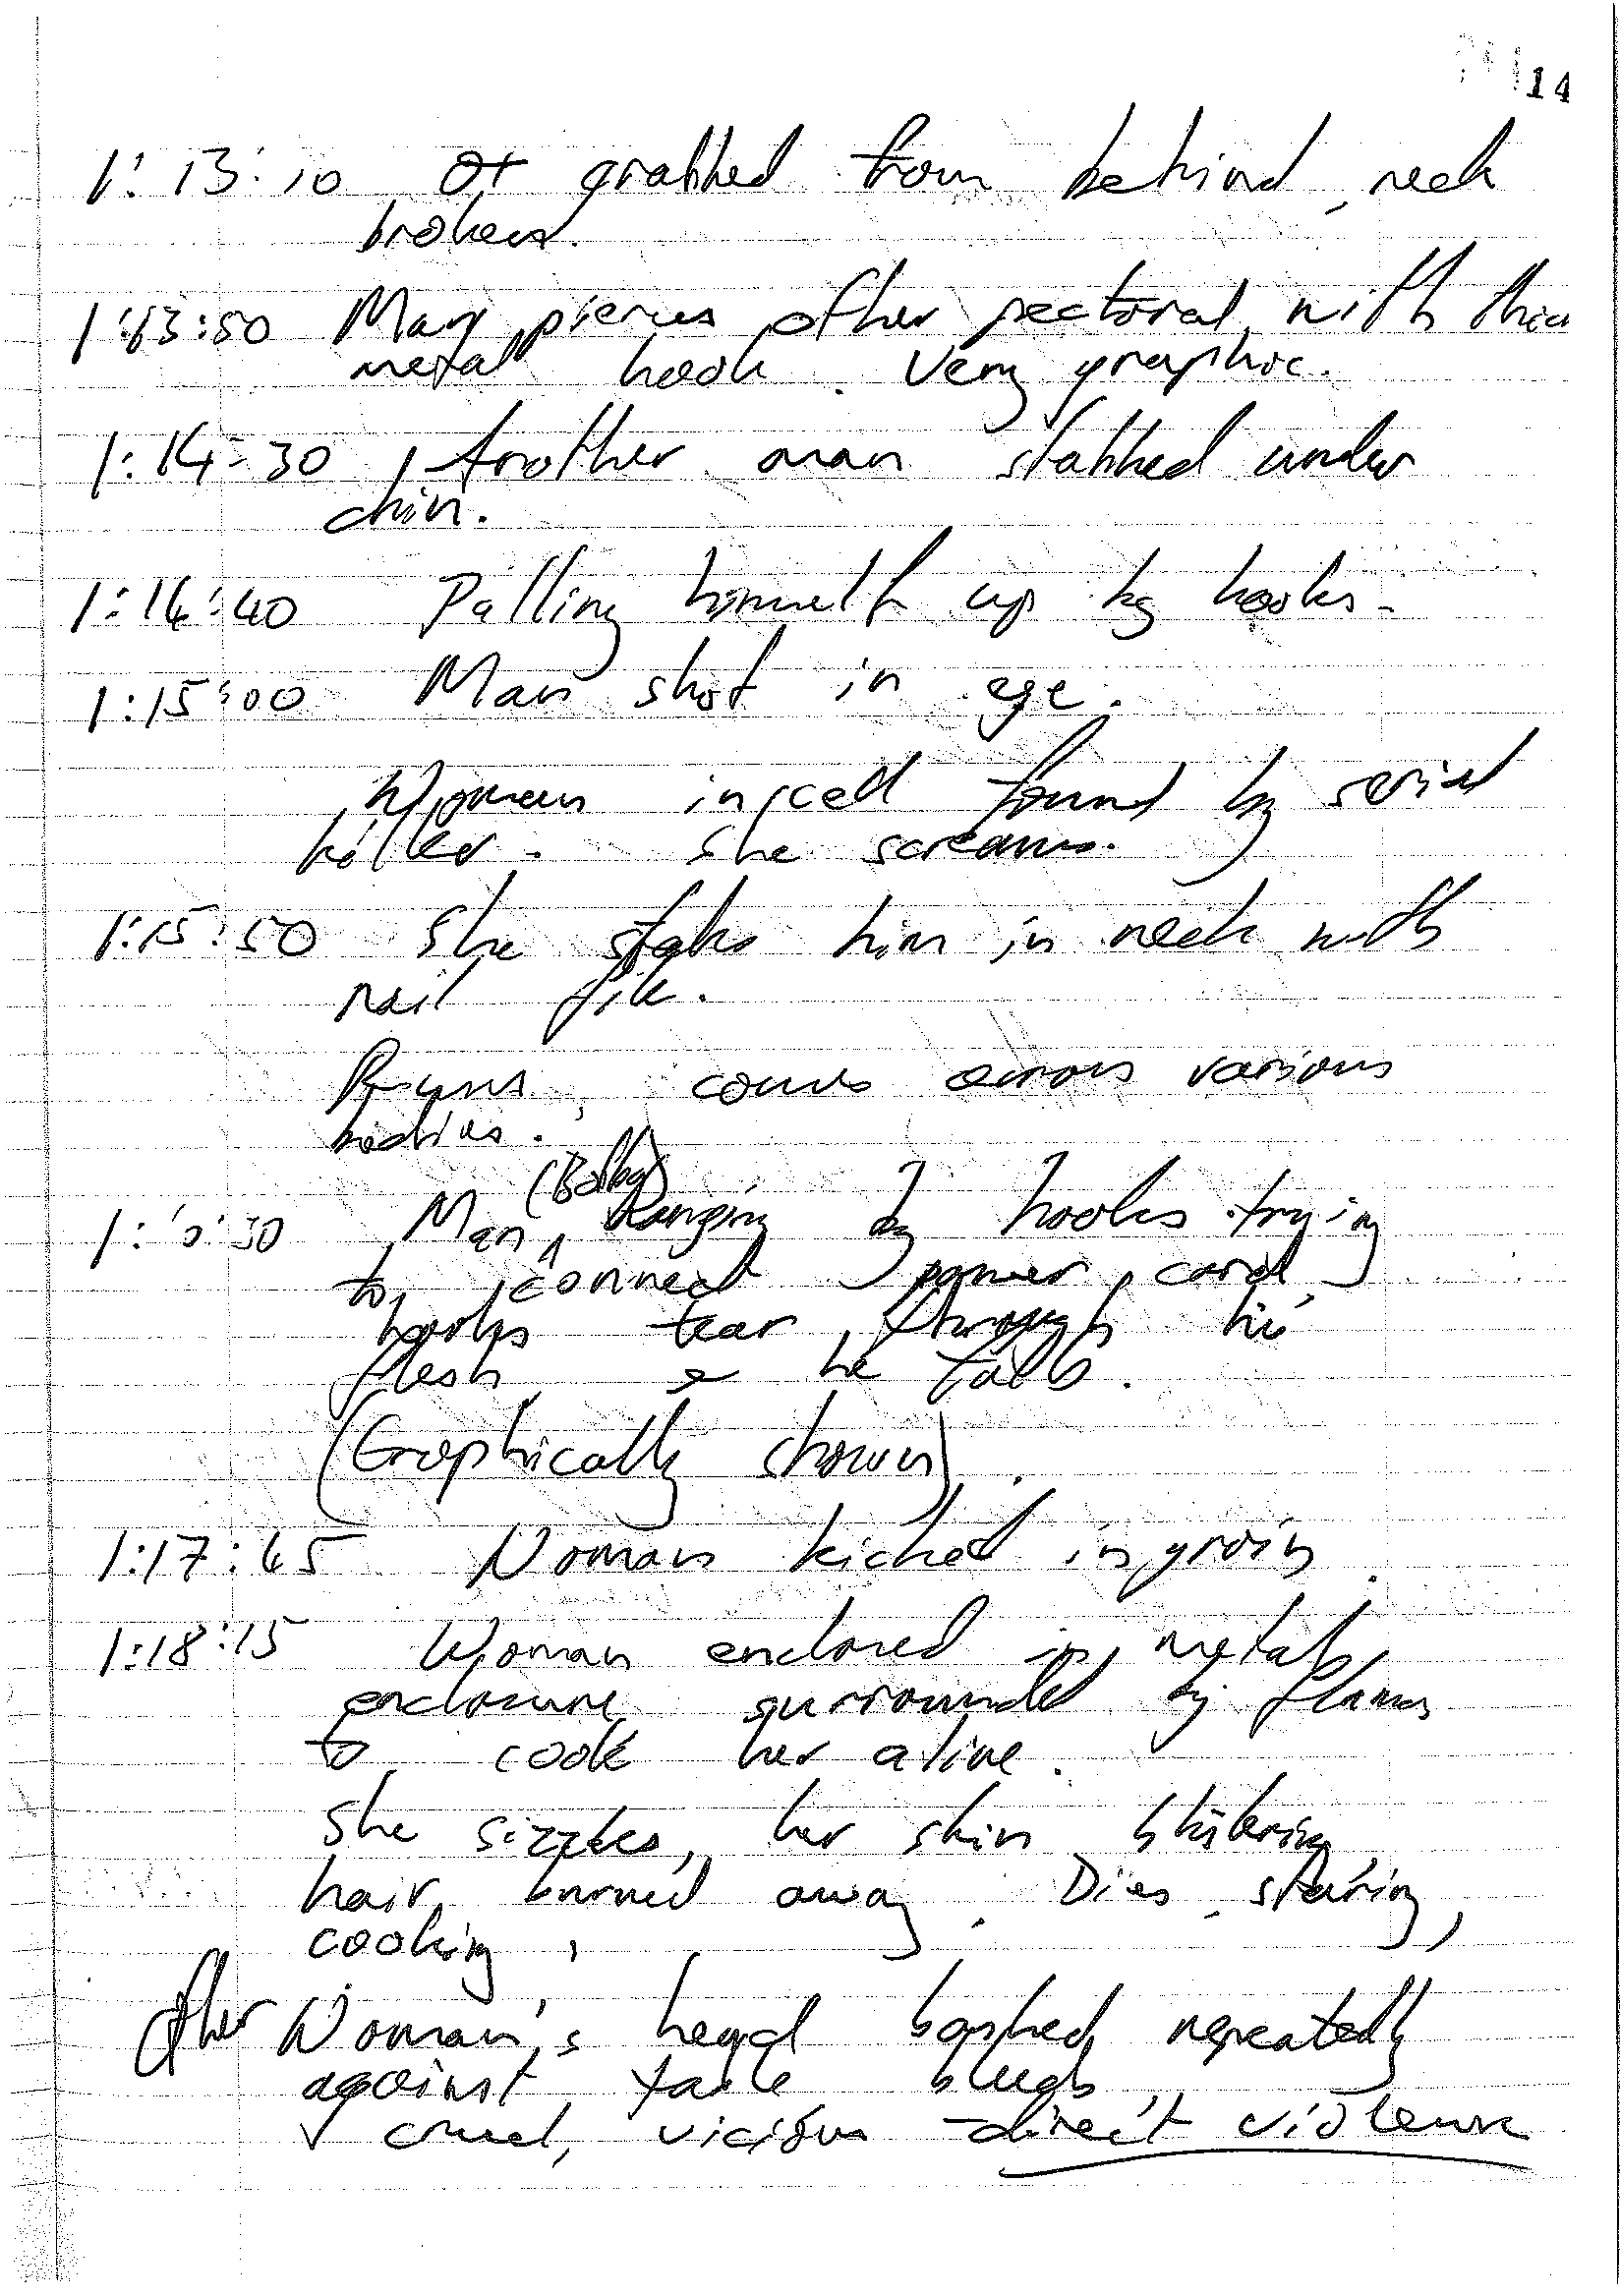 14
1:13:10 grabbed from behind, neck
broken.
1:13:50 Man pierces other pectoral with
metal hook. Very graphic.
1:14:30 Another man stabbed under
chin.
1:14:40 Pulling himself up by hooks.
1:15:00 Man shot in eye.
Woman in cell found by serial
killer. She screams.
1:15:50 She stabs him in neck with
nail file.
Runs, comes across various
bodies.
Man hanging by hooks trying
to connect power cord,
hooks tear through his
flesh & he falls.
(Graphically shown).
1:17:45 Woman kicked in groin.
1:18:15 Woman enclosed in metal
enclosure surrounded by flames
to cook her alive.
She sizzles, her skin blistering,
hair burned away. Dies, staring,
cooking.
Other Woman's head bashed repeatedly
against table
cruel, vicious direct violence